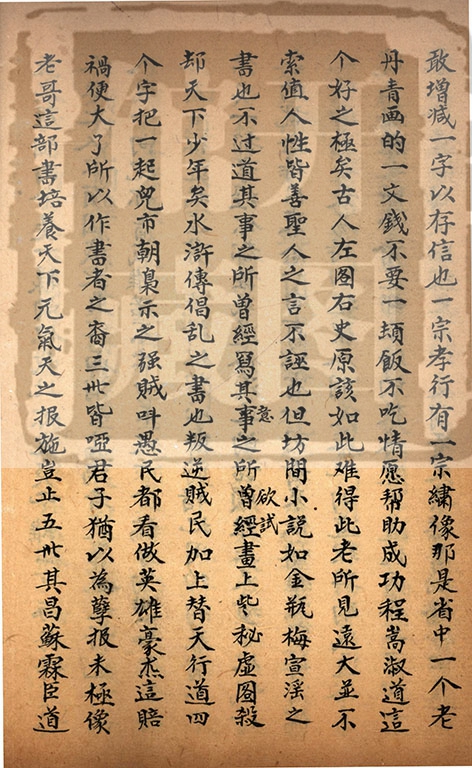 敢增减一字以存信也一宗孝行有一宗繡像那是省中一个老
丹青画的一文錢不要一頓飯不吃情愿帮助成功程嵩淑道這
个好之極矣古人左图右史原該如此难得此老所見遠大並不
索值人性皆善聖人之言不誣也但坊間小說如金瓶梅宣淫之
書也不过道其事之所曾經寫其意事之所曾經欲試畫上些秘虛图殺
却天下少年矣水滸傳倡乱之書也叛逆賊民加上替天行道四
个字把一起兇市朝梟示之强賊呌愚民都看做英雄豪杰這賠
禍便大了所以作書者之裔三丗皆啞君子猶以為孽报未極像
老哥這部書培養天下元氣天之报施豈止五丗其昌蘇霖臣道